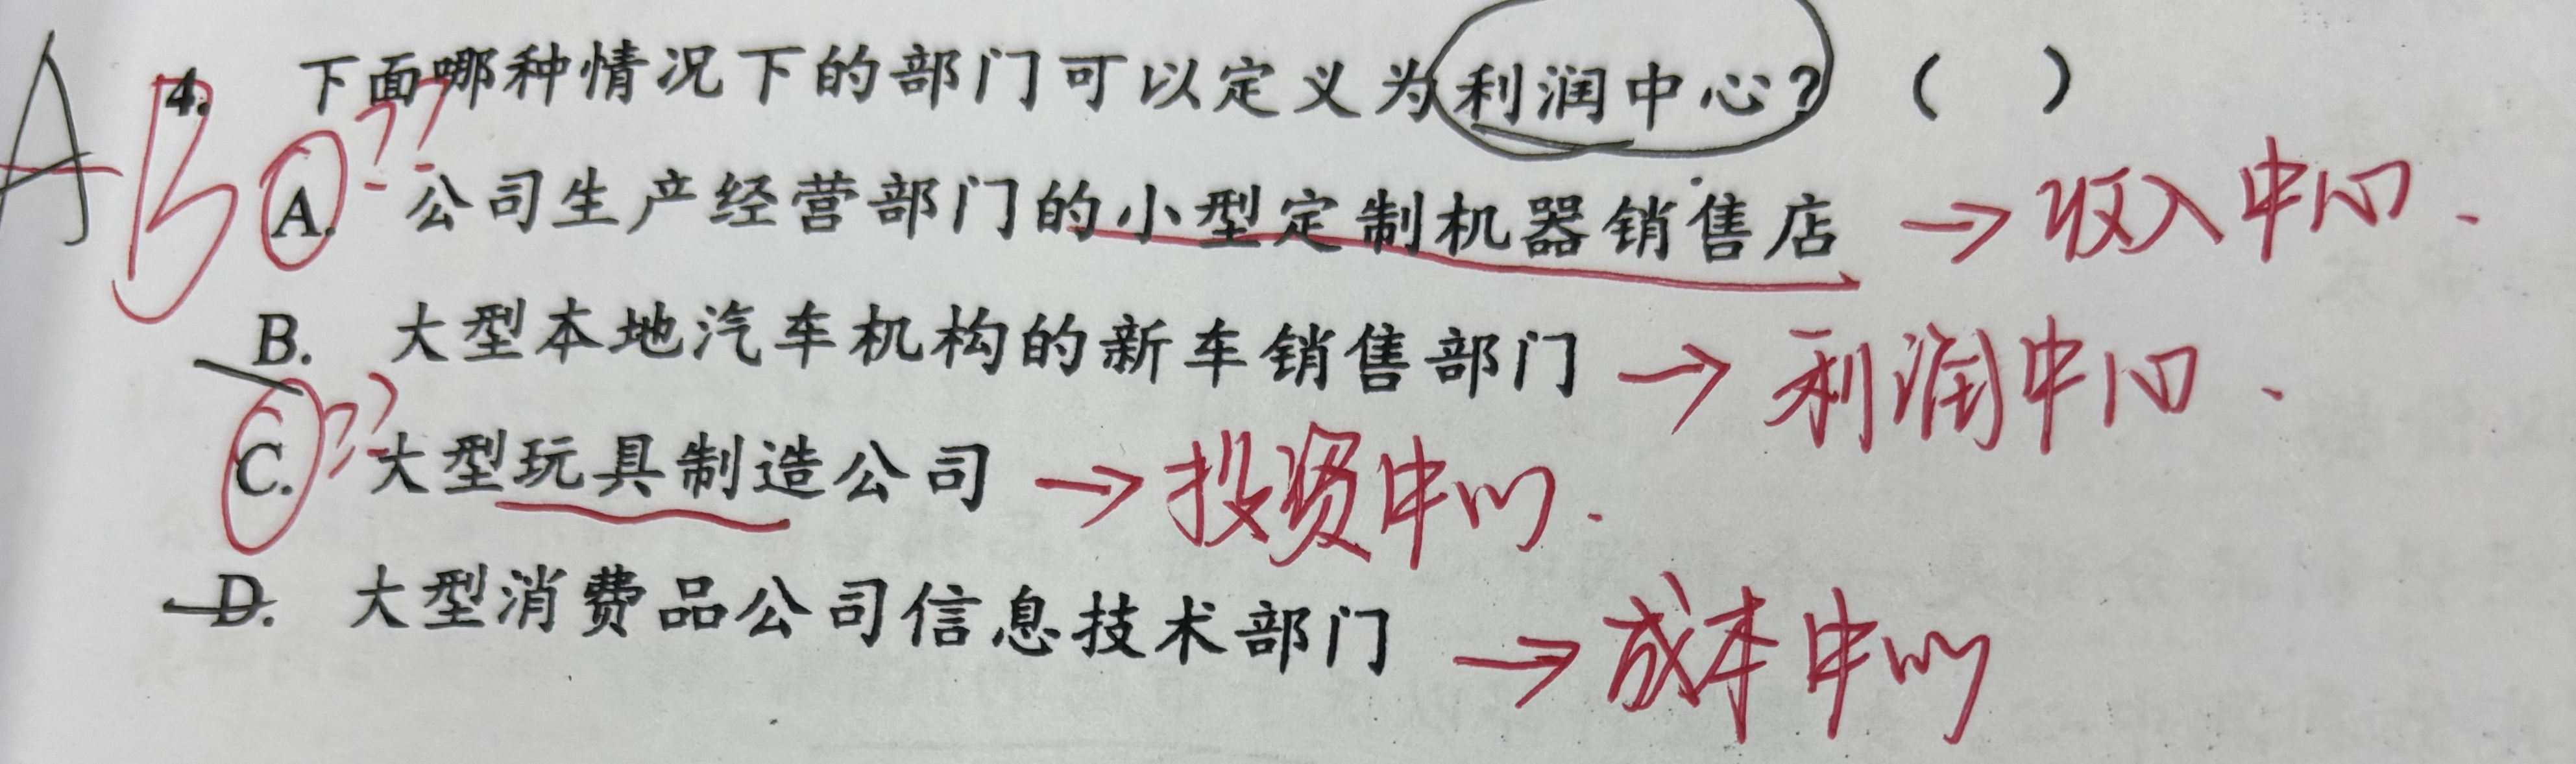 A B 4. 下面哪种情况下的部门可以定义为利润中心? ( )
A. ?? 公司生产经营部门的小型定制机器销售店 → 收入中心.
B. 大型本地汽车机构的新车销售部门 → 利润中心.
C. ?? 大型玩具制造公司 → 投资中心.
D. 大型消费品公司信息技术部门 → 成本中心